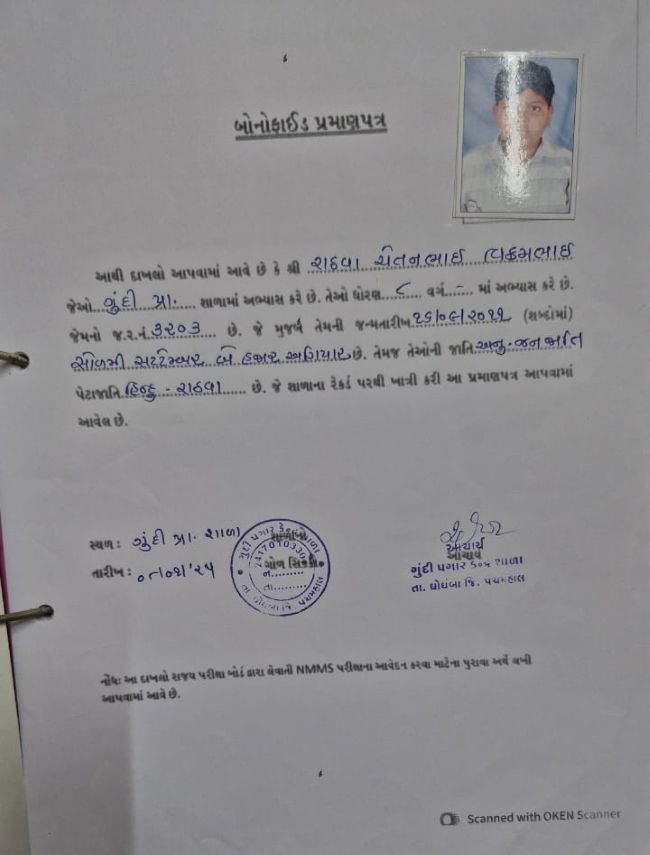 બોનોફાઈડ પ્રમાણપત્ર
આથી દાખલો આપવામાં આવે છે કે શ્રી રાઠવા ચેતનભાઈ વિક્રમભાઈ
જેઓ ગુંદી પ્રા. શાળામાં અભ્યાસ કરે છે. તેઓ ધોરણ ૮ વર્ગ - માં અભ્યાસ કરે છે.
જેમનો જ.ર.નં. ૩૨૦૩ છે. જે મુજબ તેમની જન્મતારીખ ૧૬/૦૯/૨૦૧૧ (શબ્દોમાં)
સોળમી સપ્ટેમ્બર બે હજાર અગિયાર છે. તેમજ તેઓની જાતિ અનુ-જન જાતિ
પેટાજાતિ હિન્દુ - રાઠવા છે. જે સાળાના રેકર્ડ પરથી ખાત્રી કરી આ પ્રમાણપત્ર આપવામાં
આવેલ છે.
સ્થળ: ગુંદી પ્રા. શાળા
તારીખ:
ગુંદી પગાર કેન્દ્ર શાળા
ગોળ સિક્કો
નં.
તા.
તા. ઘોઘંબા જિ. પંચમહાલ
આચાર્ય
આચાર્ય
ગુંદી પગાર કેન્દ્ર શાળા
તા. ઘોઘંબા જિ. પંચમહાલ
નોંધ: આ દાખલો રાજય પરીક્ષા બોર્ડ દ્વારા લેવાતી NMMS પરીક્ષાના આવેદન કરવા માટેના પુરાવા અર્થે લખી
આપવામાં આવે છે.
Scanned with OKEN Scanner